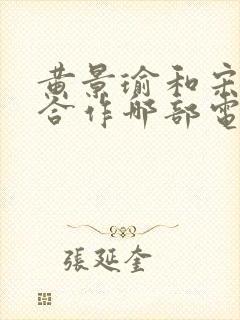 黄景瑜和宋
合作那部电
張延奎